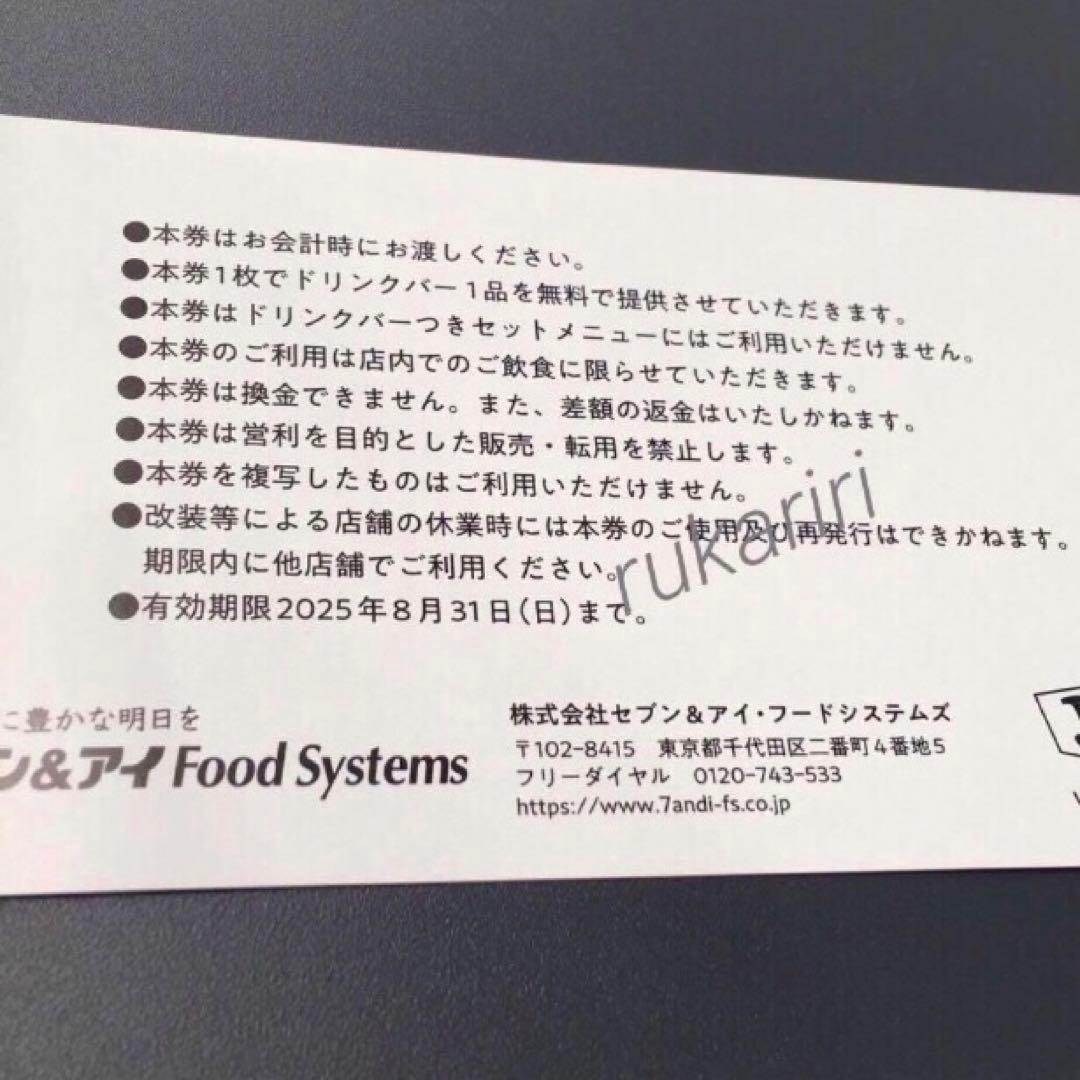 ●本券はお会計時にお渡しください。
●本券1枚でドリンクバー1品を無料で提供させていただきます。
●本券はドリンクバーつきセットメニューにはご利用いただけません。
●本券のご利用は店内でのご飲食に限らせていただきます。
●本券は換金できません。また、差額の返金はいたしかねます。
●本券は営利を目的とした販売・転用を禁止します。
●本券を複写したものはご利用いただけません。
●改装等による店舗の休業時には本券のご使用及び再発行はできかねます。
期限内に他店舗でご利用ください。
●有効期限2025年8月31日(日)まで。
rukariri
に豊かな明日を
ン&アイ Food Systems
株式会社セブン&アイ・フードシステムズ
〒102-8415 東京都千代田区二番町4番地5
フリーダイヤル 0120-743-533
https://www.7andi-fs.co.jp